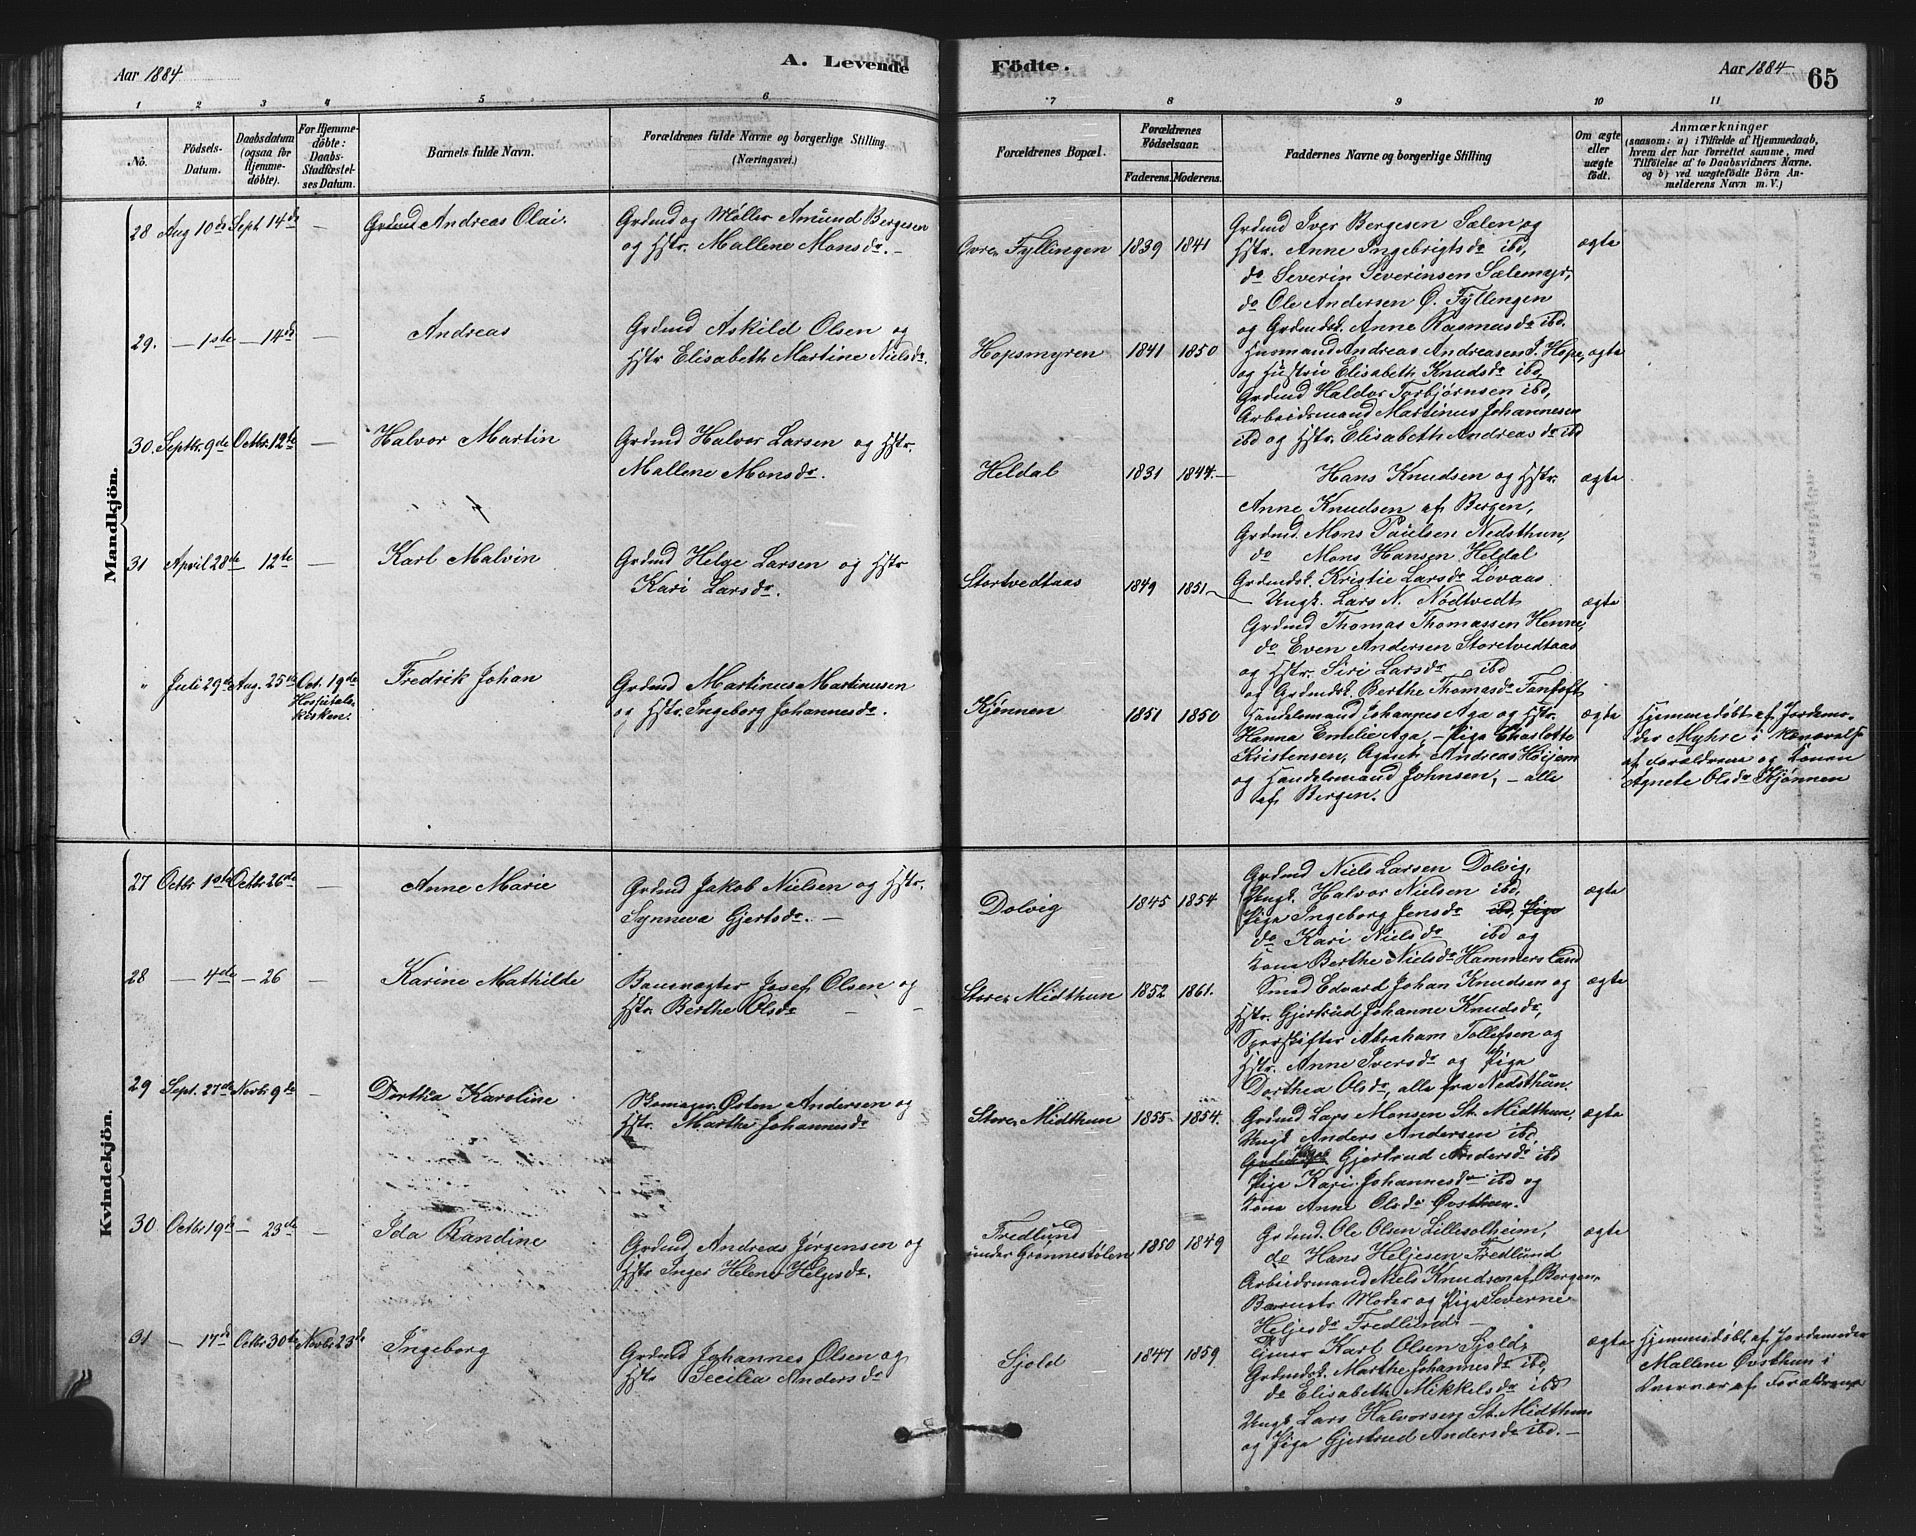 Aar 1884
A. Levende Födte.
Aar 1884
65
1 2 3 4 5 6 7 8 9 10 11
No.
Födsels-
Datum.
Daabsdatum
(ogsaa for
Hjemme-
döbte).
For Hjemme-
döbte:
Daabs-
Stadfæstel-
ses Datum.
Barnets fulde Navn.
Forældrenes fulde Navne og borgerlige Stilling
(Næringsvei.)
Forældrenes Bopæl.
Forældrenes
Födselsaar.
Faderens. Moderens.
Faddernes Navne og borgerlige Stilling
Om ægte
eller
uægte
födt.
Anmærkninger
(saasom: a) i Tilfælde af Hjemmedaab,
hvem der har forrettet samme, med
Tilföielse af to Daabsvidners Navne.
og b) ved uægtefödte Börn An-
melderens Navn m. V.)
Mandkjön.
28 Aug 10de Sept 14de — Andreas Olai.
Grdmd og Møller Amund Bergesen
og Hstr. Mallene Monsdr. —
Øvre Fyllingen 1839 1841
Grdmd Iver Bergesen Sælen og
Hstr. Anne Ingebrigtsdr ibd,
do Severin Severinsen Sælemyr,
do Ole Andersen Ø. Fyllingen
og Grdmdsk. Anne Rasmusdr ibd.
ægte
29. — 1ste — 14de — Andreas
Grdmd Askild Olsen og
Hstr Elisabeth Martine Nielsdr.
Hopsmyren 1841 1850
Husmand Andreas Andreasen S. Hope,
og Hustru Elisabeth Knudsdr ibd,
Grdmd Haldor Torbjørnsen ibd,
Arbeidsmand Martinus Johannesen
ibd og Hstr. Elisabeth Andreasdr ibd
ægte
30. Septbr. 9de Octbr. 12te — Halvor Martin
Grdmd Halvor Larsen og Hstr.
Mallene Monsdr.
Heldal 1831 1844. —
Hans Knudsen og Hstr.
Anne Knudsen af Bergen,
Grdmd. Mons Paulsen Nedsthun,
do Mons Hansen Heldal
Grdmdsk. Kristie Larsdr Løvaas
ægte
31 April 28de — 12te — Karl Malvin
Grdmd Helge Larsen og Hstr
Kari Larsdr.
Stortvedtaas 1849 1851 —
Ungk. Lars N. Nødtvedt
Grdmd Thomas Thomassen Henne,
do Even Andersen Storetvedtaas
og Hstr. Siri Larsdr ibd
og Grdmdsk. Berthe Thomasdr Fantoft
ægte
" Juli 29de Aug. 25de Oct. 19de
Hospitals-
kirken.
Fredrik Johan
Grdmd Martinus Martinusen
og Hstr. Ingeborg Johannesdr.
Kjønnen 1851 1850
Handelsmand Johannes Aga og Hstr.
Hanna Emelie Aga, — Pige Charlotte
Kristensen, Agent Andreas Høijem
og Handelsmand Johnsen, — alle
af Bergen.
ægte
Hjemmedøbt af Jordemo-
der Myhre i Nærværelse
af Forældrene og Konen
Agnete Olsdr Kjønnen
Kvindekjön.
27 Octbr 1ste Octbr 26de — Anne Marie
Grdmd Jakob Nielsen og Hstr.
Synneva Gjertsdr. —
Dolvig 1845 1854
Grdmd Niels Larsen Dolvig,
Ungk. Halvor Nielsen ibd,
Pige Ingeborg Jensdr ibd, Pige
do Kari Nielsdr ibd og
Kona Berthe Nielsdr Hammersland
ægte
28 — 4de — 26 — Karine Mathilde
Banevogter Josef Olsen og
Hstr. Berthe Olsdr — —
Store Midthun 1852 1861.
Smed Edvard Johan Knudsen og
Hstr. Gjertrud Johanne Knudsdr,
Sporskifter Abraham Tollefsen og
Hstr. Anne Iversdr og Pige
Dorthea Olsdr, alle fra Nedsthun
ægte
29 Sept. 27de Novbr 9de — Dorthea Karoline
Skomager Østen Andersen og
Hstr. Marthe Johannesdr
Store Midthun 1855 1854.
Grdmd Lars Monsen St. Midthun,
Ungk Anders Andersen ibd,
Gjertrud Andersdr ibd
Pige Kari Johannesdr ibd og
Kona Anne Olsdr Øvsthun.
ægte
30 Octbr 19de — 23de — Ida Randine
Grdmd Andreas Jørgensen og
Hstr Inger Helene Heljesdr.
Fredlund
under Grønnestølen, 1850 1849
Grdmd. Ole Olsen Lillesolheim,
do Hans Heljesen Fredlund
Arbeidsmand Niels Knudsen af Bergen,
Barnets Moder og Pige Severine
Heljesdr Fredlund. —
ægte
31 — 17de Octbr 30te Novbr 23de Ingeborg
Grdmd Johannes Olsen og
Hstr Cecilia Andersdr
Sjold 1847 1859
Tjener Karl Olsen Sjold,
Grdmdsk. Marthe Johannesdr ibd,
do Elisabeth Mikkelsdr ibd
Ungk Lars Halvorsen St. Midthun
og Pige Gjertrud Andersdr ibd. —
ægte
Hjemmedøbt af Jordemoder
Mallene Øvsthun i
Overvær af Forældrene